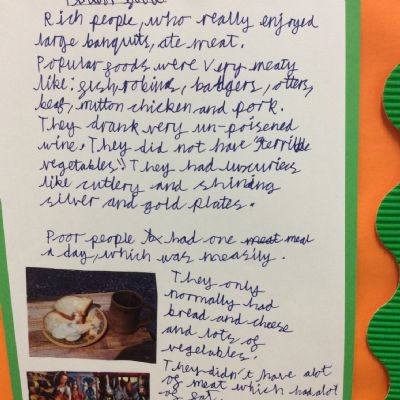 Rich people, who really enjoyed
large banquits, ate meat.
Popular foods were very meaty
like: fish, robins, badgers, otters,
beaf, mutton chicken and pork.
They drank very un-poisened
wine. They did not have 'terrible
vegetables'! They had luxcuries
like cutlery and shining
silver and gold plates.
Poor people had one meat meal
a day, which was measily.
They only
normally had
bread and cheese
and lots of
vegetables.
They didn't have alot
of meat which had alot
of